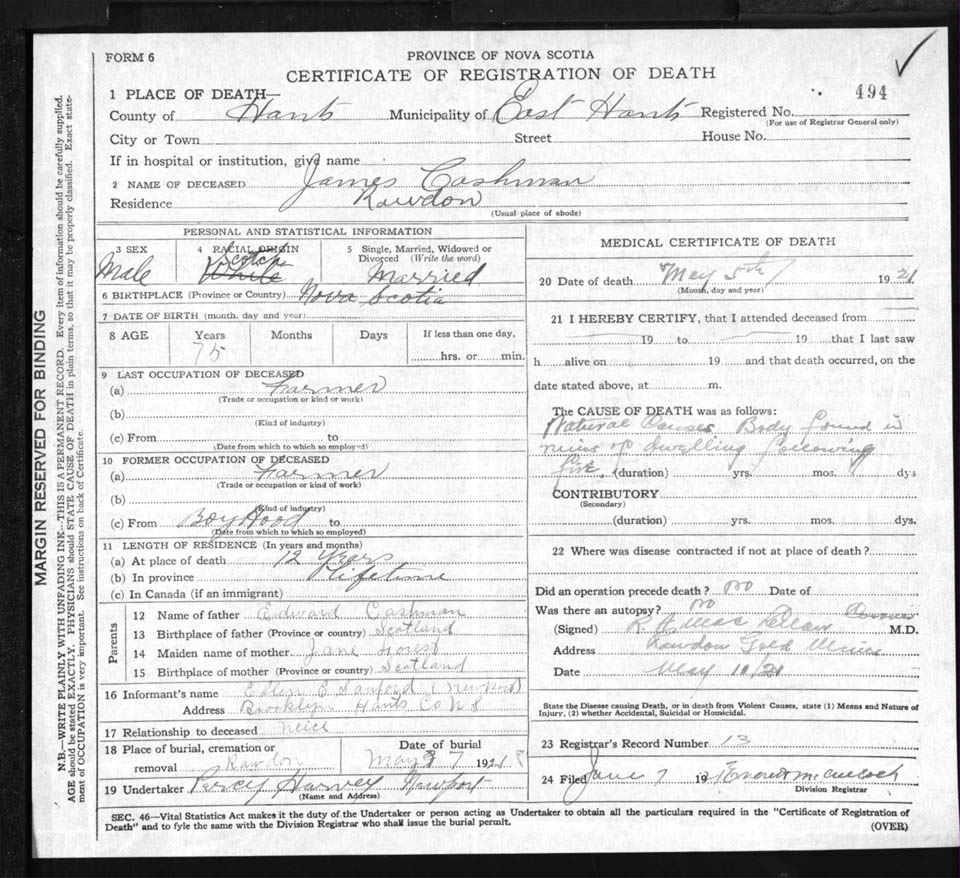 FORM 6
PROVINCE OF NOVA SCOTIA
CERTIFICATE OF REGISTRATION OF DEATH
1 PLACE OF DEATH—
494
County of Hants Municipality of East Hants Registered No.
(For use of Registrar General only)
City or Town Street House No.
If in hospital or institution, give name
2 NAME OF DECEASED James Cashman
Residence Rawdon
(Usual place of abode)
PERSONAL AND STATISTICAL INFORMATION
3 SEX Male
4 RACIAL ORIGIN Scotch White
5 Single, Married, Widowed or Divorced (Write the word) Married
6 BIRTHPLACE (Province or Country) Nova Scotia
7 DATE OF BIRTH (month, day and year)
8 AGE Years Months Days If less than one day,
75 hrs. or min.
9 LAST OCCUPATION OF DECEASED
(a) Farmer
(Trade or occupation or kind or work)
(b)
(Kind of industry)
(c) From to
(Date from which to which so employed)
10 FORMER OCCUPATION OF DECEASED
(a) Farmer
(Trade or occupation or kind of work)
(b)
(Kind of industry)
(c) From Boy Hood to
(Date from which to which so employed)
11 LENGTH OF RESIDENCE (In years and months)
(a) At place of death 12 Years
(b) In province lifetime
(c) In Canada (if an immigrant)
Parents
12 Name of father Edward Cashman
13 Birthplace of father (Province or country) Scotland
14 Maiden name of mother Jane
15 Birthplace of mother (Province or country) Scotland
16 Informant's name Sanford (Newport)
Address Brooklyn Hants Co N S
17 Relationship to deceased neice
18 Place of burial, cremation or removal Rawdon
Date of burial May 7 192
19 Undertaker Percy Harvey Newport
(Name and Address)
MEDICAL CERTIFICATE OF DEATH
20 Date of death May 5th 19 21
(Month, day and year)
21 I HEREBY CERTIFY, that I attended deceased from
19 to 19 that I last saw
h alive on 19 and that death occurred, on the
date stated above, at m.
The CAUSE OF DEATH was as follows:
Natural Causes Body found in
ruins of dwelling following
fire. (duration) yrs. mos. dys
CONTRIBUTORY
(Secondary)
(duration) yrs. mos. dys.
22 Where was disease contracted if not at place of death?
Did an operation precede death? no Date of
Was there an autopsy? no
(Signed) Coroner M.D.
Address Rawdon Gold Mines
Date May 10/21
State the Disease causing Death, or in death from Violent Causes, state (1) Means and Nature of
Injury, (2) whether Accidental, Suicidal or Homicidal.
23 Registrar's Record Number 13
24 Filed June 7 19
Division Registrar
SEC. 46—Vital Statistics Act makes it the duty of the Undertaker or person acting as Undertaker to obtain all the particulars required in the "Certificate of Registration of
Death" and to fyle the same with the Division Registrar who shall issue the burial permit.
(OVER)
MARGIN RESERVED FOR BINDING
N.B.—WRITE PLAINLY WITH UNFADING INK—THIS IS A PERMANENT RECORD. Every item of information should be carefully supplied.
AGE should be stated EXACTLY. PHYSICIANS should STATE CAUSE OF DEATH in plain terms, so that it may be properly classified. Exact state-
ment of OCCUPATION is very important. See instructions on back of Certificate.